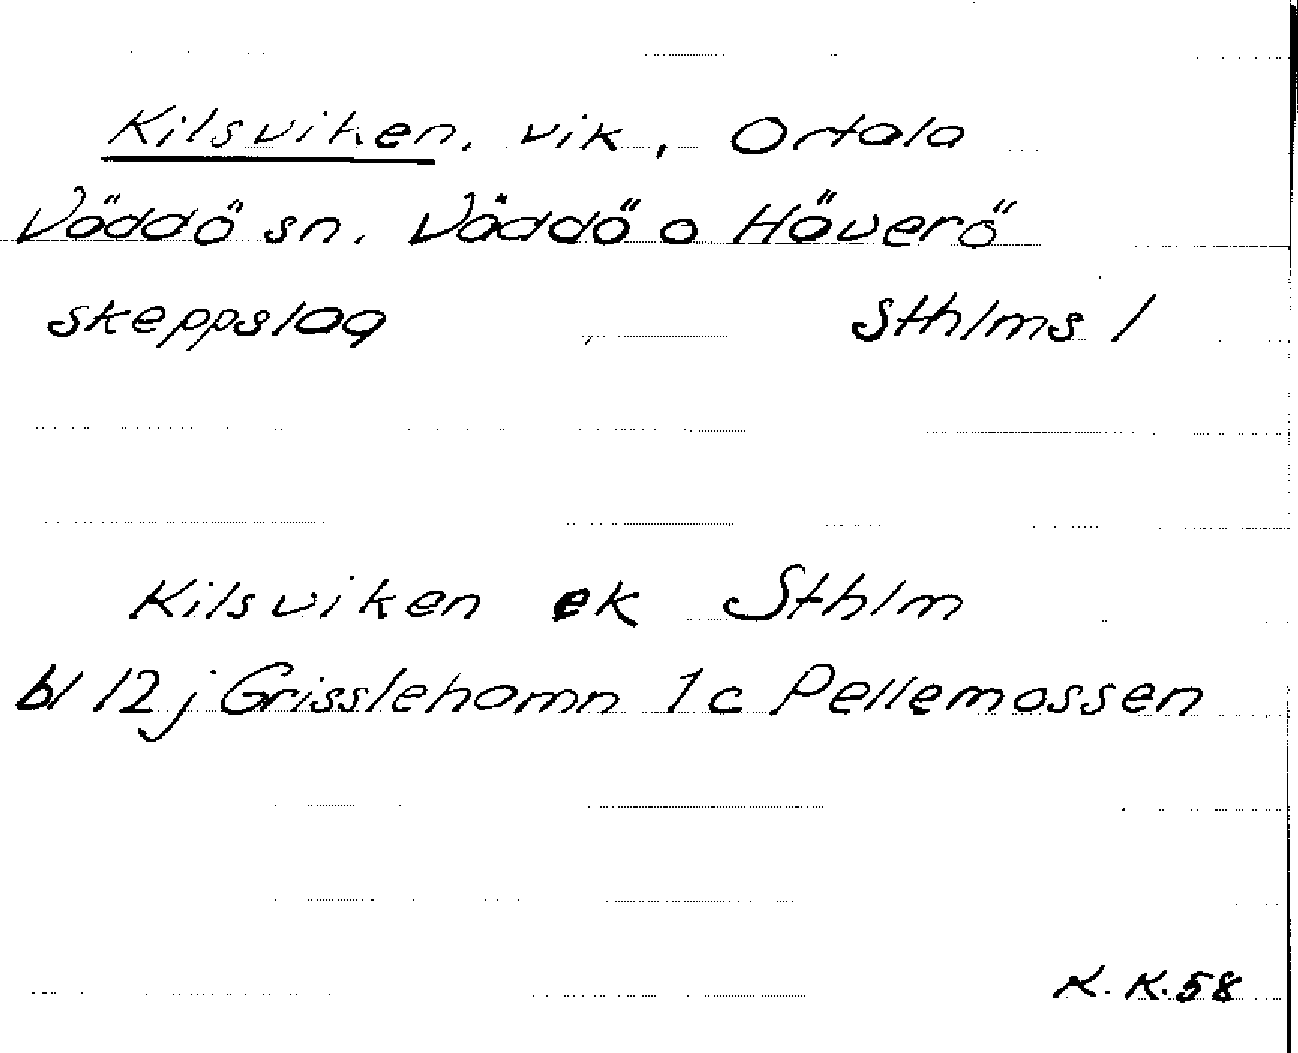 Kilsviken, vik, Ortala
Väddö sn. Väddö o Häverö
skeppslag Sthlms l
Kilsviken ek Sthlm
bl 12 j Grisslehamn 1 c Pellemossen
K. K. 58